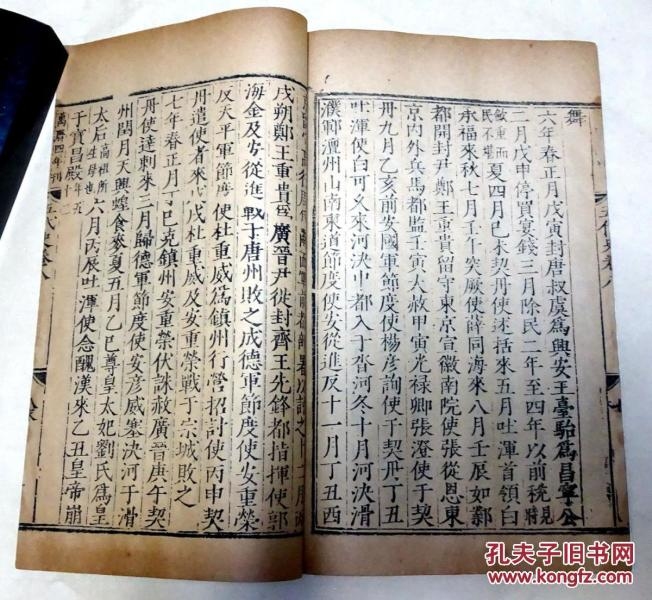 舞
六年春正月戊寅封唐叔虞爲興安王臺駘爲昌寧公
二月戊申停買宴錢三月除民二年至四年以前稅見時
斂重而民不堪夏四月己未契丹使述括來五月吐渾首領白
承福來秋七月壬午突厥使薛同海來八月壬辰如鄴
都開封尹鄭王重貴留守東京宣徽南院使張從恩東
京內外兵馬都監壬寅大赦甲寅光禄卿張澄使于契
丹九月乙亥前安國軍節度使楊彦詢使于契丹丁丑
吐渾使白可久來河決中都入于沓河冬十月河決滑
濮鄆澶州山南東道節度使安從進反十一月丁丑西
五代史卷八
以討之十二月丙
戌朔鄭王重貴爲廣晉尹從封齊王先鋒都指揮使郭
海金及安從進戰于唐州敗之成德軍節度使安重榮
反天平軍節度使杜重威爲鎮州行營招討使丙申契
丹遣使者來戊戌杜重威及安重榮戰于宗城敗之
七年春正月丁巳克鎮州安重榮伏誅赦廣晉庚午契
丹使達剌來三月歸德軍節度使安彦威塞決河于滑
州閏月天興蝗食麥夏五月乙巳尊皇太妃劉氏爲皇
太后高祖所生母也六月丙辰吐渾使念醜漢來乙丑皇帝崩
于寶昌殿年五十二
萬曆四年刊
五代史卷八
孔夫子旧书网
www.kongfz.com